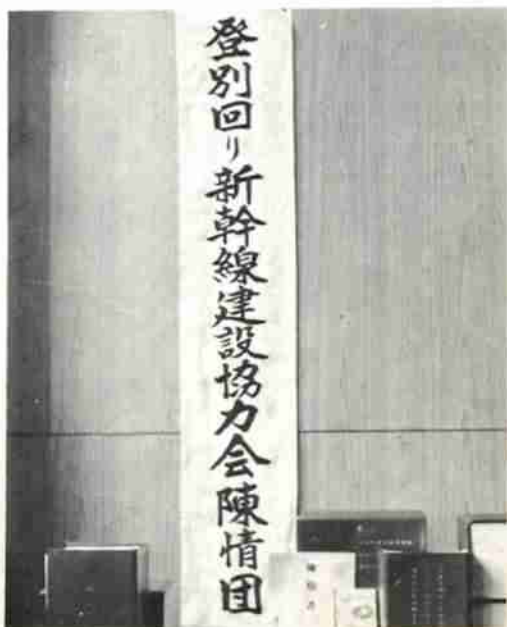 登別回り新幹線建設協力会陳情団
陳情書